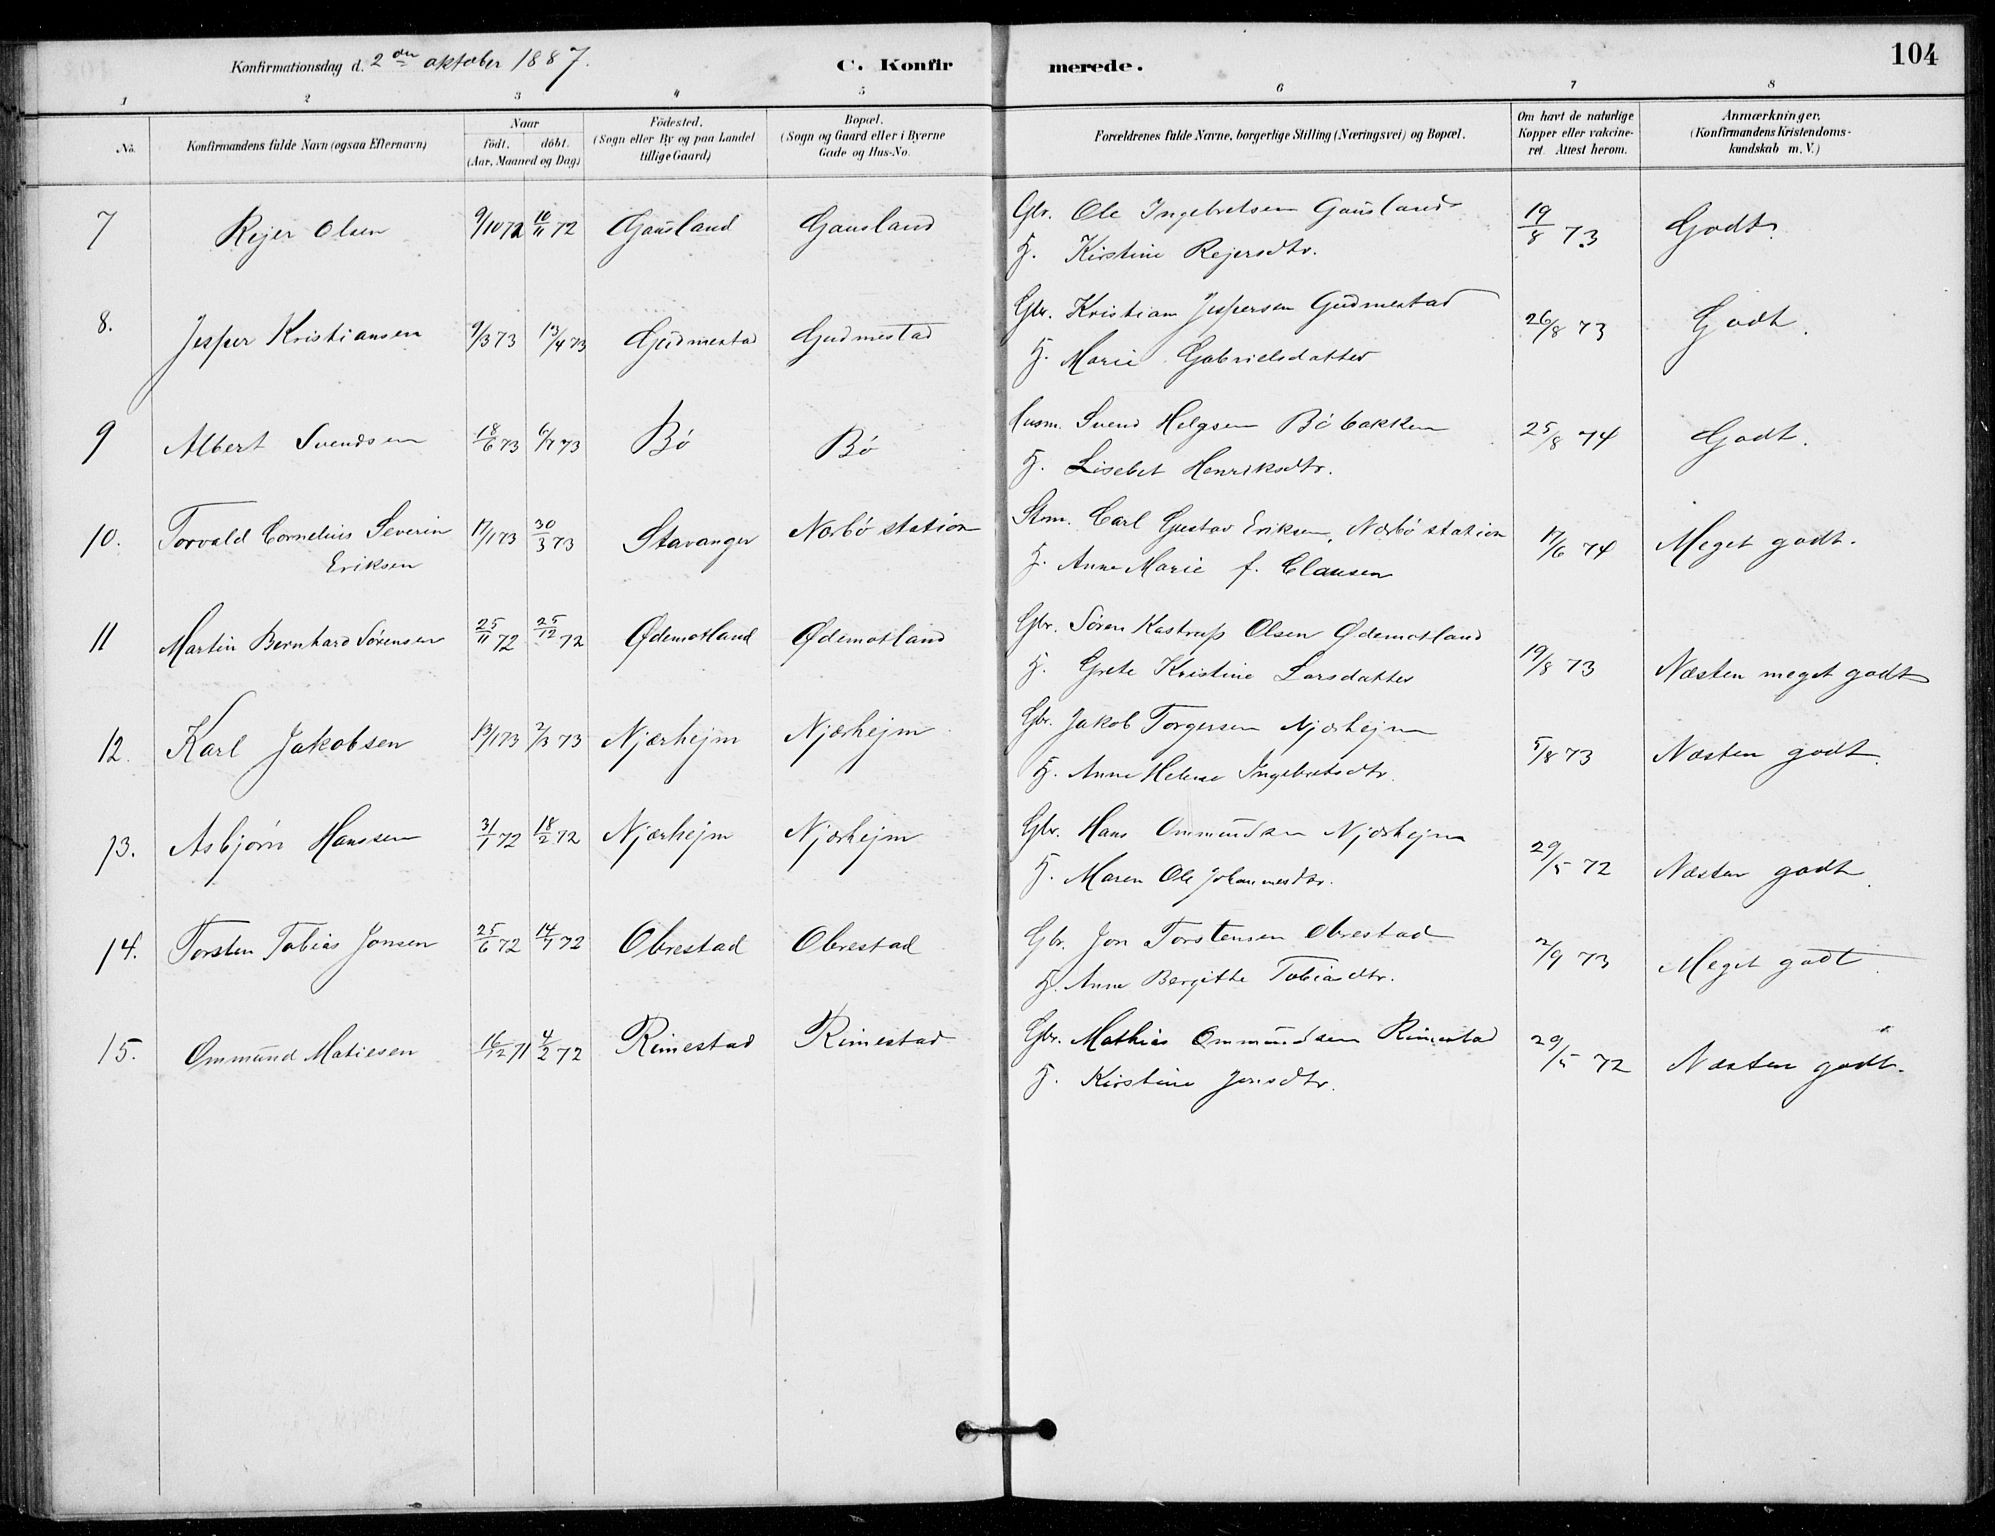 Konfirmationsdag d. 2den oktober 1887.
C. Konfirmerede.
104
1 2 3 4 5 6 7 8
No.
Konfirmandens fulde Navn (ogsaa Efternavn)
Naar
født. døbt.
(Aar, Maaned og Dag)
Fødested.
(Sogn eller By og paa Landet
tillige Gaard)
Bopæl.
(Sogn og Gaard eller i Byerne
Gade og Hus-No.
Forældrenes fulde Navne, borgerlige Stilling (Næringsvei) og Bopæl.
Om havt de naturlige
Kopper eller vakcine-
ret. Attest herom.
Anmærkninger,
(Konfirmandens Kristendoms-
kundskab m. V.)
7 Rejer Olsen 9/10 72 10/11 72 Gausland Gausland Gbr. Ole Ingebretsen Gausland 19/8 73 Godt.
H. Kirstine Rejersdtr.
8. Jesper Kristiansen 9/3 73 13/4 73 Gudmestad Gudmestad Gbr. Kristian Jespersen Gudmestad 26/8 73 Godt.
H. Marie Gabrielsdatter
9 Albert Svendsen 18/6 73 6/7 73 Bø Bø Husm. Svend Helgsen Bøbakken 25/8 74 Godt.
H. Lisebet Henriksdtr.
10. Torvald Cornelius Severin 17/1 73 30/3 73 Stavanger Nærbø station Stm. Carl Gustav Eriksen, Nærbø station 17/6 74 Meget godt.
Eriksen
H. Anne Marie f. Clausen
11 Martin Bernhard Sørensen 25/11 72 25/12 72 Ødemotland Ødemotland Gbr. Søren Kastrup Olsen Ødemotland 19/8 73 Næsten meget godt
H. Grete Kristine Larsdatter
12. Karl Jakobsen 13/1 73 2/3 73 Njærhejm Njærhejm Gbr. Jakob Torgersen Njærhejm 5/8 73 Næsten godt.
H. Anne Helene Ingebretsdtr.
13. Asbjørn Hanssen 31/1 72 18/2 72 Njærhejm Njærhejm Gbr. Hans Ommundsen Njærhejm 29/5 72 Næsten godt.
H. Maren Ole Johannesdtr.
14. Torsten Tobias Jonsen 25/6 72 14/7 72 Obrestad Obrestad Gbr. Jon Torstensen Obrestad 2/9 73 Meget godt.
H. Anne Bergitte Tobiasdtr.
15. Ommund Matiesen 16/12 71 4/2 72 Rimestad Rimestad Gbr. Mathias Ommundsen Rimestad 29/5 72 Næsten godt.
H. Kirstine Jonsdtr.